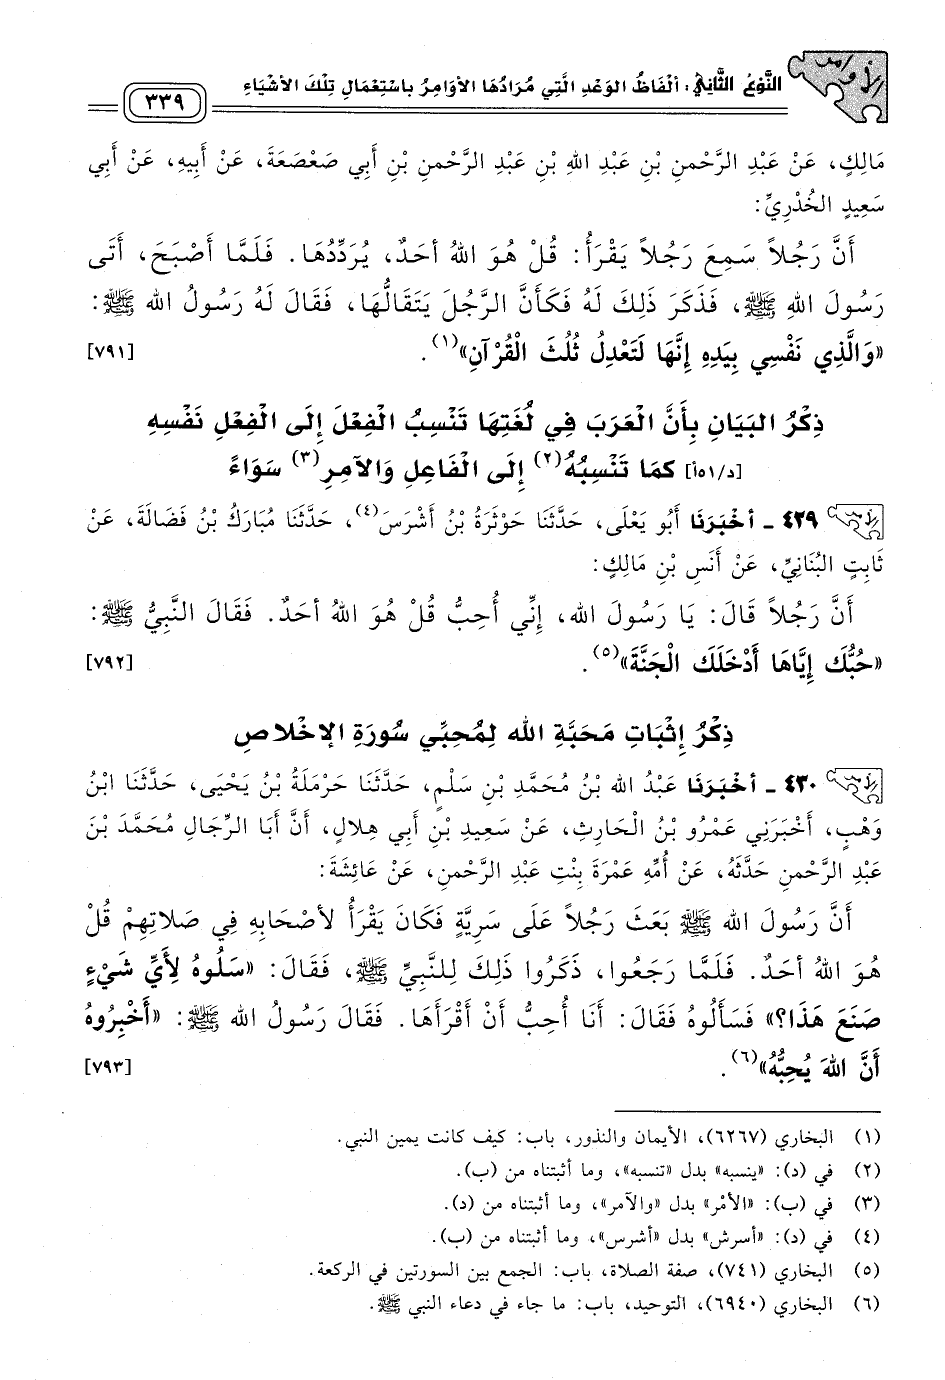 الأوامر
النَّوْعُ الثَّانِي: أَلْفَاظُ الوَعْدِ الَّتِي مُرَادُهَا الأَوَامِرُ بِاسْتِعْمَالِ تِلْكَ الأَشْيَاءِ
٣٣٩
مَالِكٍ، عَنْ عَبْدِ الرَّحْمنِ بْنِ عَبْدِ اللهِ بْنِ عَبْدِ الرَّحْمنِ بْنِ أَبِي صَعْصَعَةَ، عَنْ أَبِيهِ، عَنْ أَبِي
سَعِيدٍ الخُدْرِيِّ:
أَنَّ رَجُلاً سَمِعَ رَجُلاً يَقْرَأُ: قُلْ هُوَ اللهُ أحَدٌ، يُرَدِّدُهَا. فَلَمَّا أَصْبَحَ، أَتَى
رَسُولَ اللهِ ﷺ، فَذَكَرَ ذَلِكَ لَهُ فَكَأَنَّ الرَّجُلَ يَتَقَالُّهَا، فَقَالَ لَهُ رَسُولُ الله ﷺ:
«وَالَّذِي نَفْسِي بِيَدِهِ إِنَّهَا لَتَعْدِلُ ثُلُثَ الْقُرْآنِ»(١). [٧٩١]
ذِكْرُ البَيَانِ بِأَنَّ الْعَرَبَ فِي لُغَتِهَا تَنْسِبُ الْفِعْلَ إِلَى الْفِعْلِ نَفْسِهِ
[د/١٥١أ] كمَا تَنْسِبُهُ(٢) إِلَى الْفَاعِلِ وَالآمِرِ(٣) سَوَاءً
الأوامر ٤٢٩ ـ أخْبَرَنَا أَبُو يَعْلَى، حَدَّثَنَا حَوْثَرَةُ بْنُ أَشْرَسَ(٤)، حَدَّثَنَا مُبَارَكُ بْنُ فَضَالَةَ، عَنْ
ثَابِتٍ البُنَانِيِّ، عَنْ أَنَسِ بْنِ مَالِكٍ:
أَنَّ رَجُلاً قَالَ: يَا رَسُولَ الله، إِنِّي أُحِبُّ قُلْ هُوَ اللهُ أحَدٌ. فَقَالَ النَّبِيُّ ﷺ:
«حُبُّكَ إِيَّاهَا أَدْخَلَكَ الْجَنَّةَ»(٥). [٧٩٢]
ذِكْرُ إِثْبَاتِ مَحَبَّةِ الله لِمُحِبِّي سُورَةِ الإخْلاصِ
الأوامر ٤٣٠ ـ أخْبَرَنَا عَبْدُ الله بْنُ مُحَمَّدِ بْنِ سَلْمٍ، حَدَّثَنَا حَرْمَلَةُ بْنُ يَحْيَى، حَدَّثَنَا ابْنُ
وَهْبٍ، أَخْبَرَنِي عَمْرُو بْنُ الْحَارِثِ، عَنْ سَعِيدِ بْنِ أَبِي هِلالٍ، أَنَّ أَبَا الرِّجَالِ مُحَمَّدَ بْنَ
عَبْدِ الرَّحْمنِ حَدَّثَهُ، عَنْ أُمِّهِ عَمْرَةَ بِنْتِ عَبْدِ الرَّحْمنِ، عَنْ عَائِشَةَ:
أَنَّ رَسُولَ الله ﷺ بَعَثَ رَجُلاً عَلَى سَرِيَّةٍ فَكَانَ يَقْرَأُ لأصْحَابِهِ فِي صَلاتِهِمْ قُلْ
هُوَ اللهُ أحَدٌ. فَلَمَّا رَجَعُوا، ذَكَرُوا ذَلِكَ لِلنَّبِيِّ ﷺ، فَقَالَ: «سَلُوهُ لِأَيِّ شَيْءٍ
صَنَعَ هَذَا؟» فَسَأَلُوهُ فَقَالَ: أَنَا أُحِبُّ أَنْ أَقْرَأَهَا. فَقَالَ رَسُولُ الله ﷺ: «أَخْبِرُوهُ
أَنَّ اللهَ يُحِبُّهُ»(٦). [٧٩٣]
(١) البخاري (٦٢٦٧)، الأيمان والنذور، باب: كيف كانت يمين النبي.
(٢) في (د): «ينسبه» بدل «تنسبه»، وما أثبتناه من (ب).
(٣) في (ب): «الأمْر» بدل «والآمر»، وما أثبتناه من (د).
(٤) في (د): «أسرش» بدل «أشرس»، وما أثبتناه من (ب).
(٥) البخاري (٧٤١)، صفة الصلاة، باب: الجمع بين السورتين في الركعة.
(٦) البخاري (٦٩٤٠)، التوحيد، باب: ما جاء في دعاء النبي ﷺ.